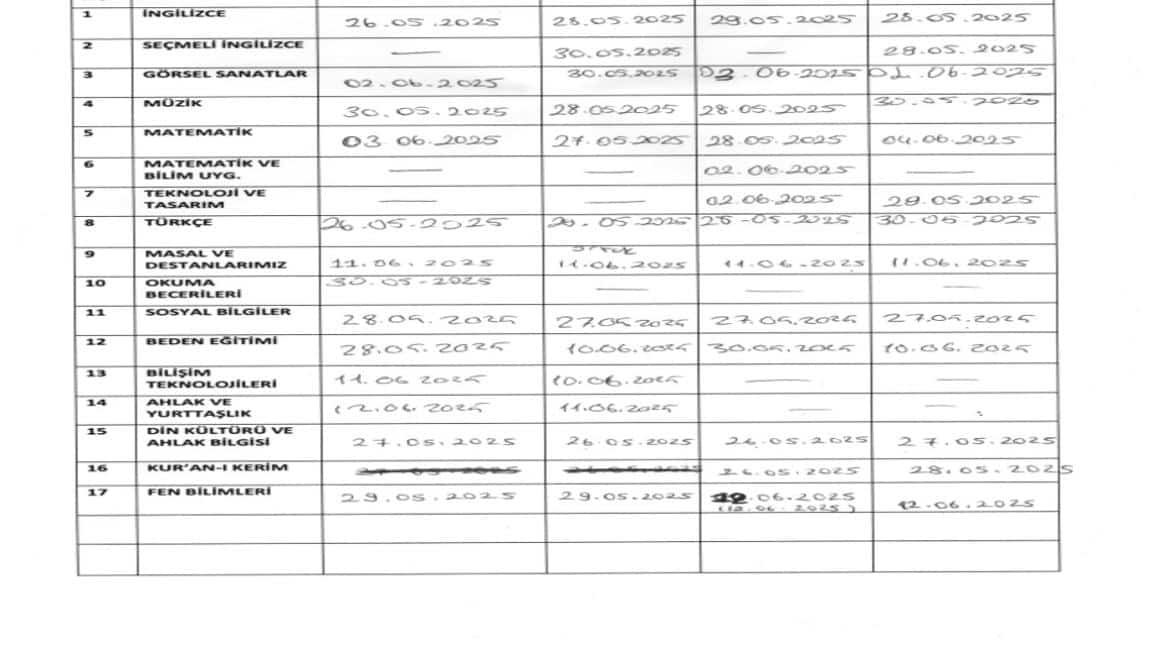 1 İNGİLİZCE 26.05.2025 28.05.2025 29.05.2025 28.05.2025
2 SEÇMELİ İNGİLİZCE — 30.05.2025 — 28.05.2025
3 GÖRSEL SANATLAR 02.06.2025 30.05.2025 03.06.2025 02.06.2025
4 MÜZİK 30.05.2025 28.05.2025 28.05.2025 30.05.2025
5 MATEMATİK 03.06.2025 27.05.2025 28.05.2025 04.06.2025
6 MATEMATİK VE
BİLİM UYG. — — 02.06.2025 —
7 TEKNOLOJİ VE
TASARIM — — 02.06.2025 29.05.2025
8 TÜRKÇE 26.05.2025 .05.2025 .05.2025 30.05.2025
9 MASAL VE
DESTANLARIMIZ 11.06.2025 11.06.2025 11.06.2025 11.06.2025
10 OKUMA
BECERİLERİ 30.05-2025 — — —
11 SOSYAL BİLGİLER 28.05.2025 27.05.2025 27.05.2025 27.05.2025
12 BEDEN EĞİTİMİ 28.05.2025 10.06.2025 30.05.2025 10.06.2025
13 BİLİŞİM
TEKNOLOJİLERİ 11.06.2025 10.06.2025 — —
14 AHLAK VE
YURTTAŞLIK 12.06.2025 11.06.2025 — —
15 DİN KÜLTÜRÜ VE
AHLAK BİLGİSİ 27.05.2025 26.05.2025 26.05.2025 27.05.2025
16 KUR'AN-I KERİM 26.05.2025 28.05.2025
17 FEN BİLİMLERİ 29.05.2025 29.05.2025 12.06.2025 12.06.2025
(12.06.2025)